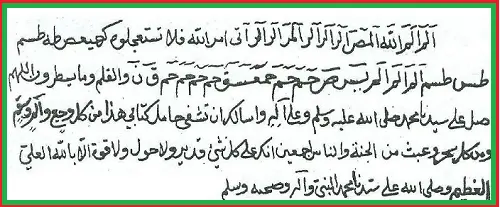 الم الم الله المص الر الر الر المر الر الر اتى امر الله فلا تستعجلوه كهيعص طه طسم
طس طسم الم الم الم الم يس ص حم حم حمعسق حم حم حم حم ق ن والقلم وما يسطرون اللهم
صل على سيدنا محمد صلى الله عليه وسلم وعلى آله واسالك ان تشفى حامل كتابي هذا من كل وجع والم وسقم
ومن كل سحر وعبث من الجنة والناس اجمعين انك على كل شيئ قدير ولا حول ولا قوة الا بالله العلي
العظيم وصلى الله على سيدنا محمد النبي وآله وصحبه وسلم